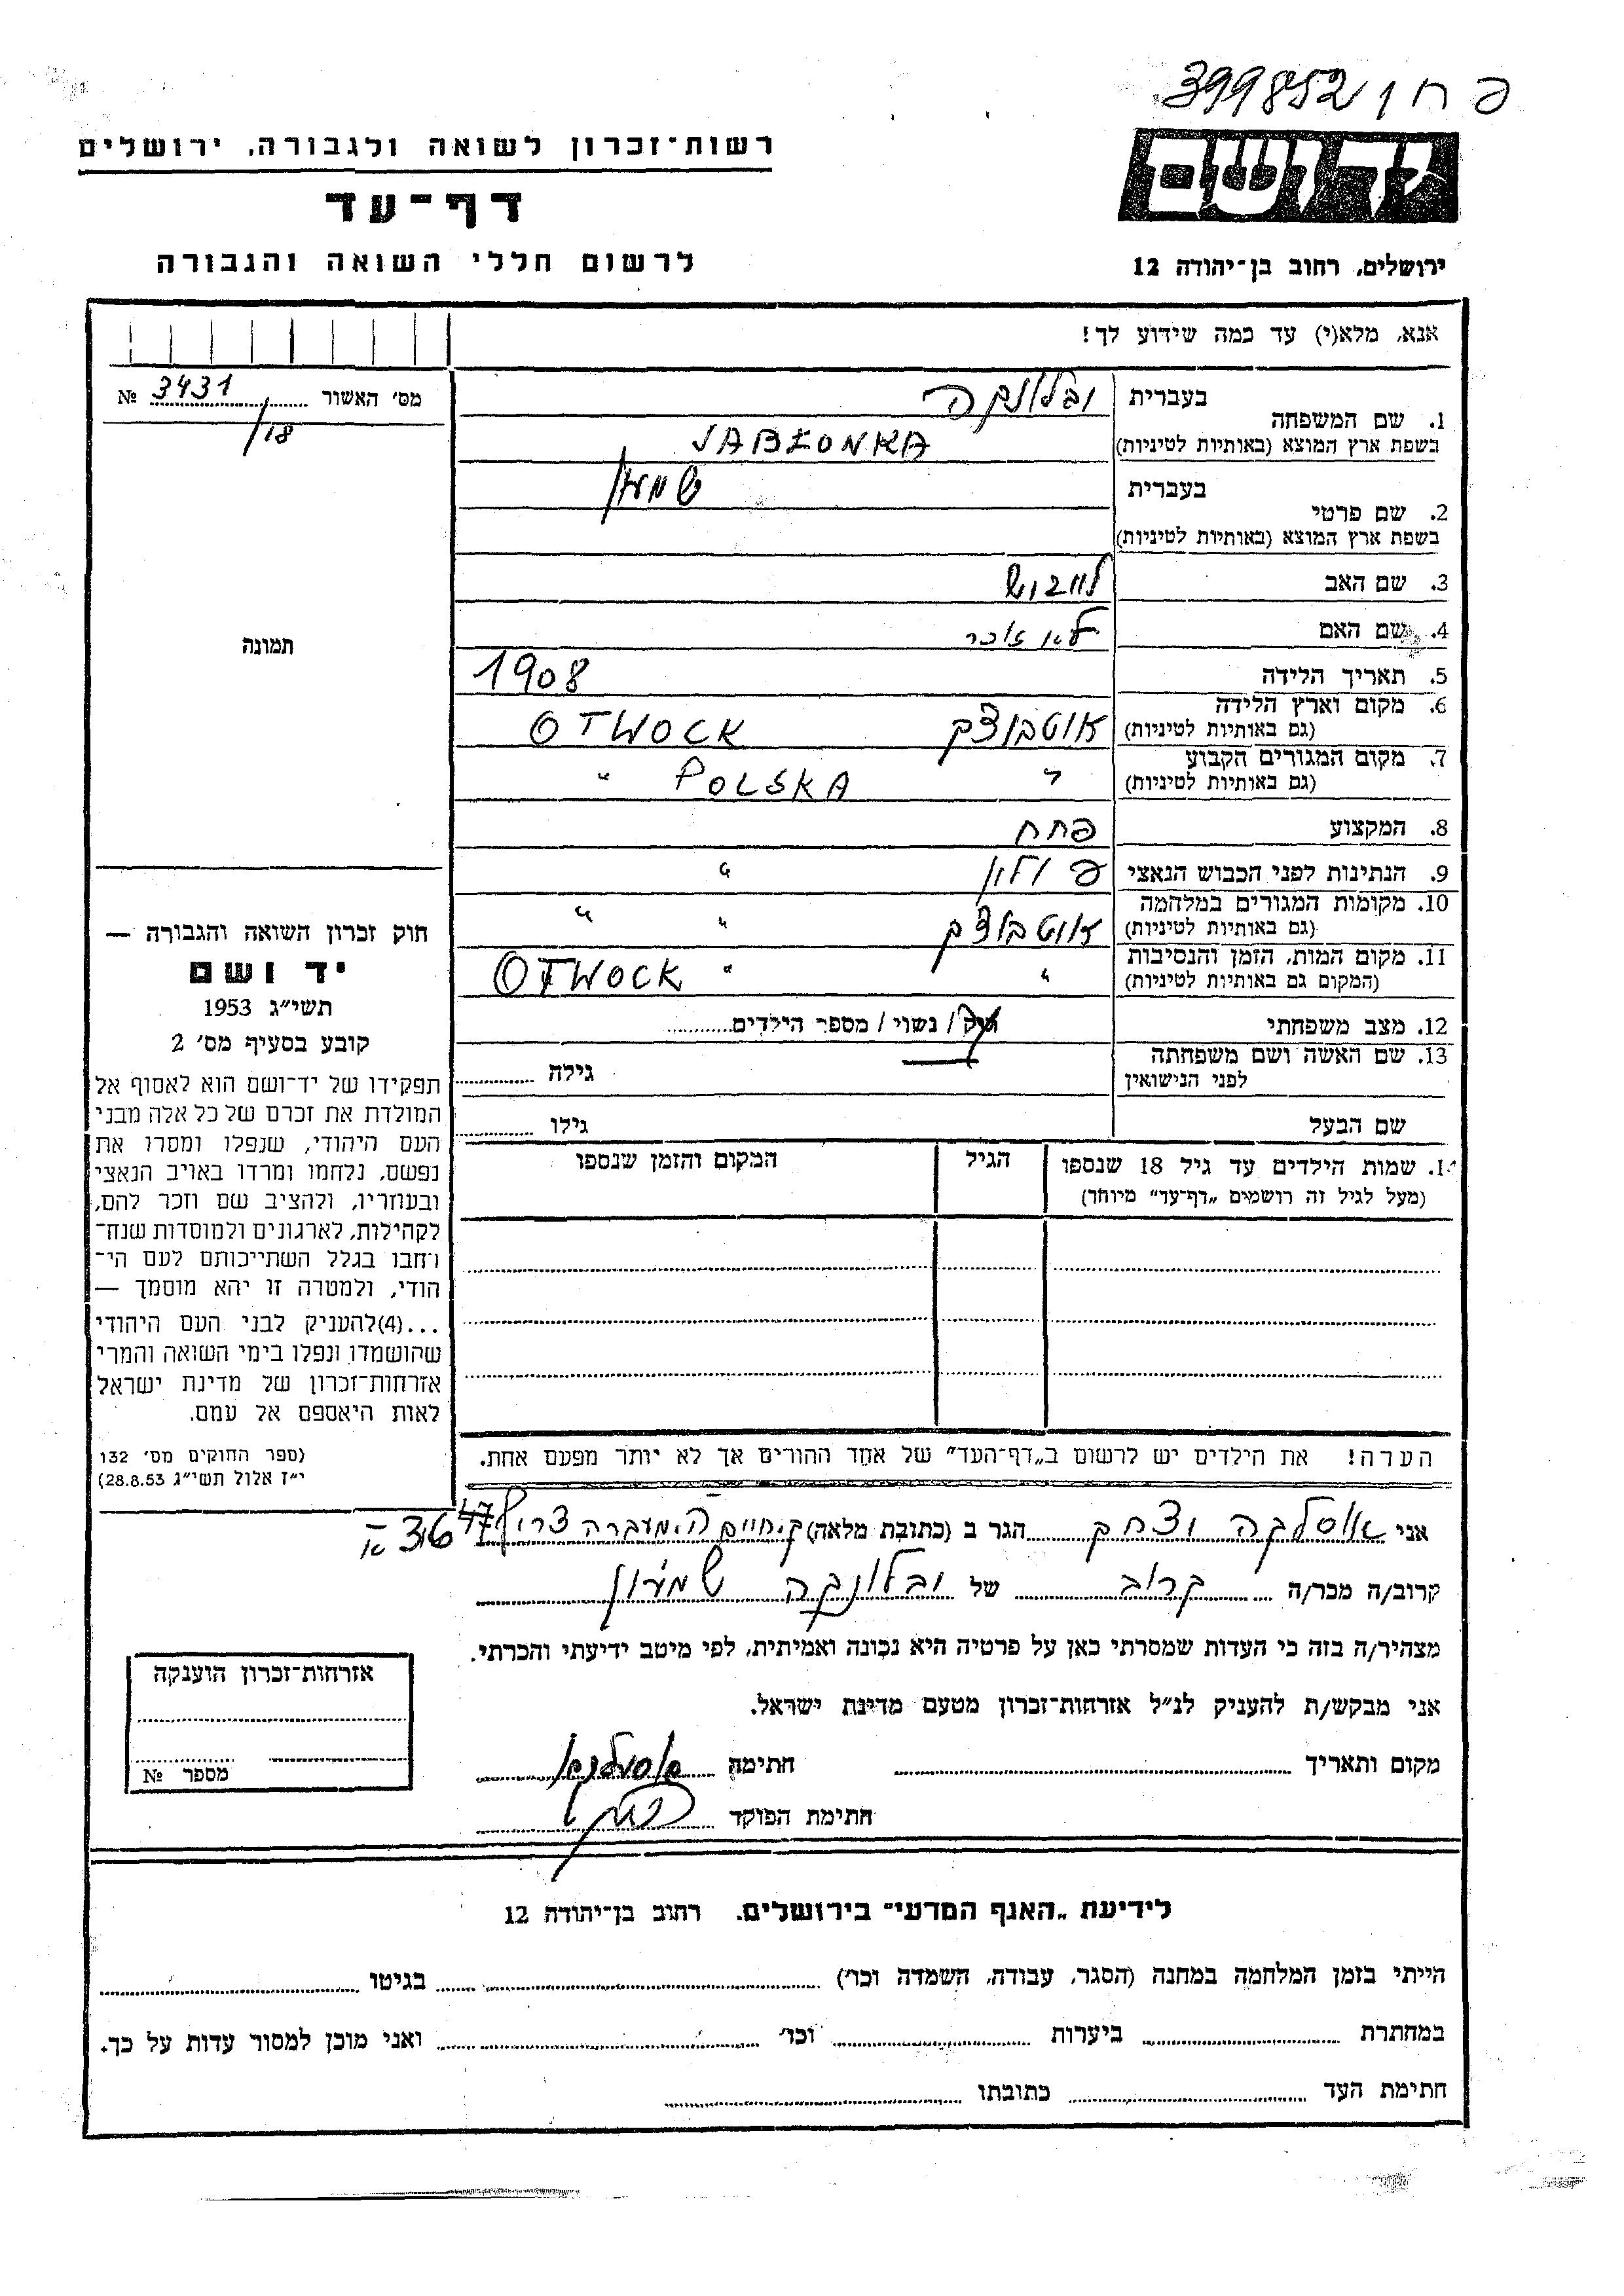 פ ח ו 399852
יד ושם
רשות־זכרון לשואה ולגבורה, ירושלים
דף־עד
לרשום חללי השואה והגבורה
ירושלים, רחוב בן־יהודה 12
אנא, מלא(י) עד כמה שידוע לך!
מס׳ האשור 3431 №
18/
1. שם המשפחה
בעברית יבלונקה
בשפת ארץ המוצא (באותיות לטיניות) JABŁONKA
2. שם פרטי
בעברית שמעון
בשפת ארץ המוצא (באותיות לטיניות)
3. שם האב לייבוש
4. שם האם
5. תאריך הלידה 1908
6. מקום וארץ הלידה
(גם באותיות לטיניות) אוטבוצק OTWOCK
7. מקום המגורים הקבוע
(גם באותיות לטיניות) " POLSKA "
8. המקצוע פחח
9. הנתינות לפני הכבוש הנאצי פולין "
10. מקומות המגורים במלחמה
(גם באותיות לטיניות) אוטבוצק " "
11. מקום המות, הזמן והנסיבות
(המקום גם באותיות לטיניות) " " OTWOCK
12. מצב משפחתי רווק / נשוי / מספר הילדים
13. שם האשה ושם משפחתה
לפני הנישואין גילה
שם הבעל גילו
14. שמות הילדים עד גיל 18 שנספו
(מעל לגיל זה רושמים „דף־עד״ מיוחד)
הגיל
המקום והזמן שנספו
הערה! את הילדים יש לרשום ב„דף־העד״ של אחד ההורים אך לא יותר מפעם אחת.
תמונה
חוק זכרון השואה והגבורה —
יד ושם
תשי״ג 1953
קובע בסעיף מס׳ 2
תפקידו של יד־ושם הוא לאסוף אל
המולדת את זכרם של כל אלה מבני
העם היהודי, שנפלו ומסרו את
נפשם, נלחמו ומרדו באויב הנאצי
ובעוזריו, ולהציב שם וזכר להם,
לקהילות, לארגונים ולמוסדות שנח־
רחבו בגלל השתייכותם לעם הי־
הודי, ולמטרה זו יהא מוסמך —
...(4)להעניק לבני העם היהודי
שהושמדו ונפלו בימי השואה והמרי
אזרחות־זכרון של מדינת ישראל
לאות היאספם אל עמם.
(ספר החוקים מס׳ 132
י״ז אלול תשי״ג 28.8.53)
אני אוסלקה יצחק הגר ב (כתובת מלאה) ק. חיים ה. מעברה צריף 47
קרוב/ה מכר/ה קרוב של יבלונקה שמעון
מצהיר/ה בזה כי העדות שמסרתי כאן על פרטיה היא נכונה ואמיתית, לפי מיטב ידיעתי והכרתי.
אני מבקש/ת להעניק לנ״ל אזרחות־זכרון מטעם מדינת ישראל.
מקום ותאריך חתימה
חתימת הפוקד
אזרחות־זכרון הוענקה
מספר №
לידיעת „האגף המדעי״ בירושלים. רחוב בן־יהודה 12
הייתי בזמן המלחמה במחנה (הסגר, עבודה, השמדה וכו׳) בגיטו
במחתרת ביערות וכו׳ ואני מוכן למסור עדות על כך.
חתימת העד כתובתו